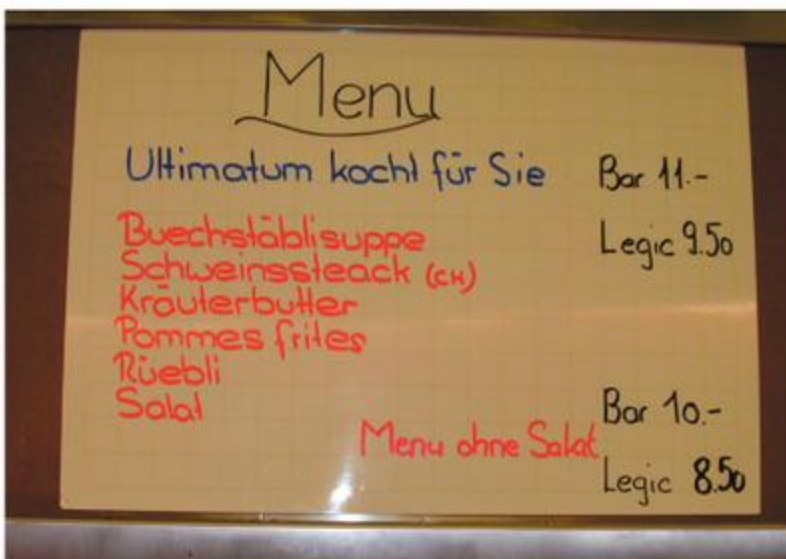 Menu
Ultimatum kocht für Sie
Bar 11.-
Legic 9.50
Buechstäblisuppe
Schweinssteack (CH)
Kräuterbutter
Pommes frites
Rüebli
Salat
Menu ohne Salat
Bar 10.-
Legic 8.50